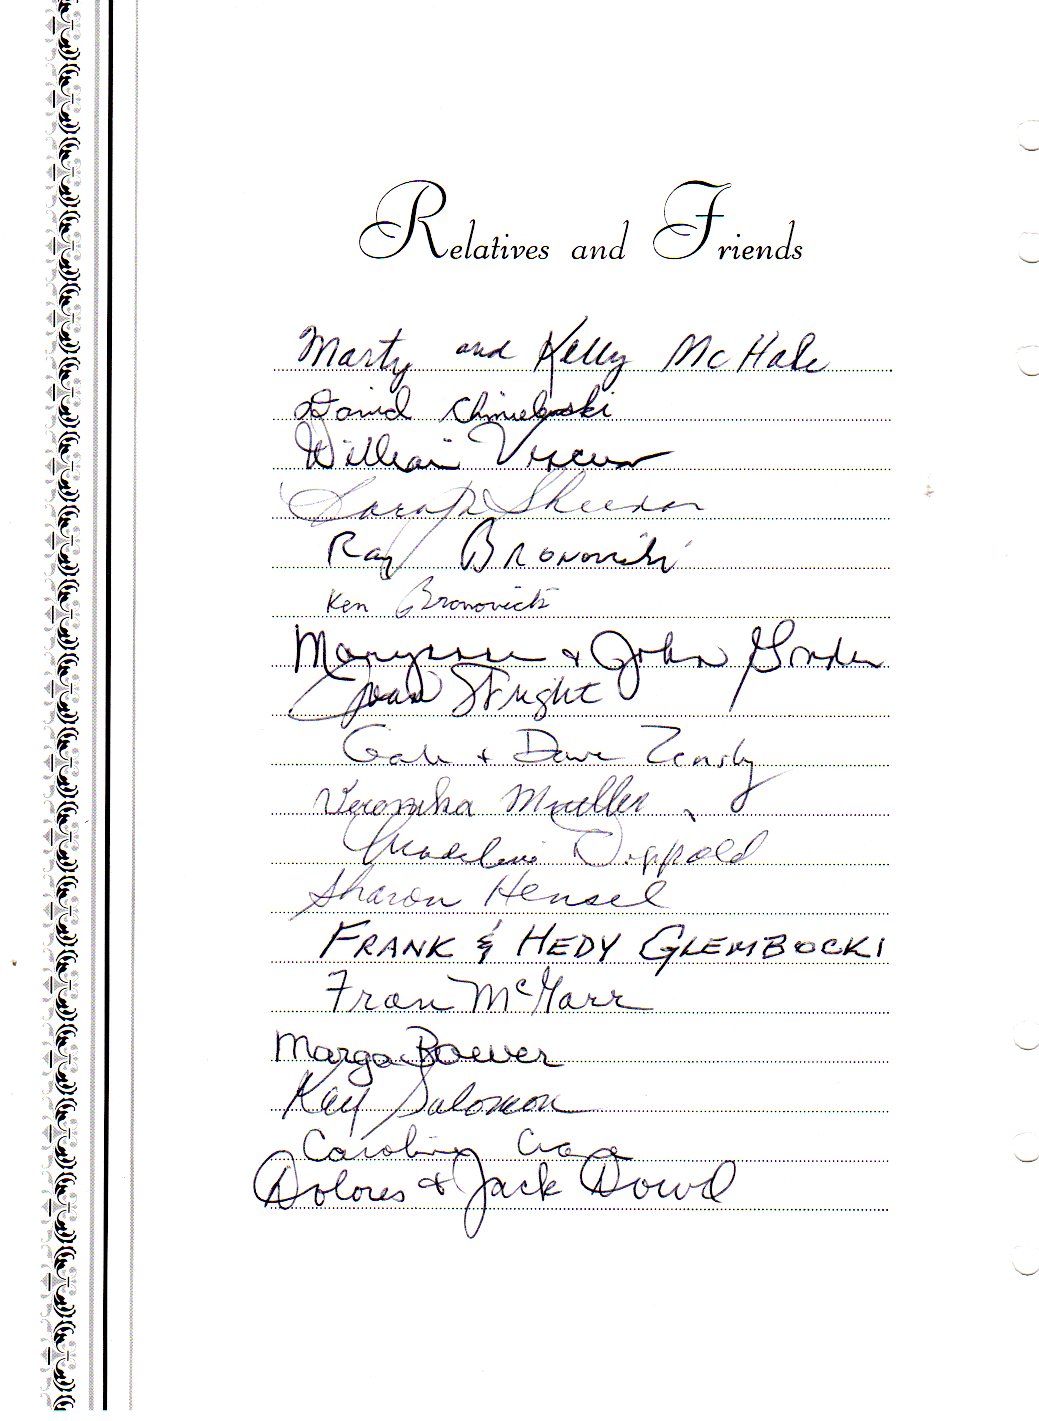 Relatives and Friends
Marty and Kelly McHale
David Chmielewski
William
Sarah Sheehan
Ray Bronovicki
Ken Bronovicki
Maryanne & John
Joan Stright
Gale & Dave
Veronika Mueller
Madeline Dippold
Sharon Hensel
FRANK & HEDY GLEMBOCKI
Fran McGarr
Marga Bower
Kay Salomon
Caroline
Dolores & Jack Dowd